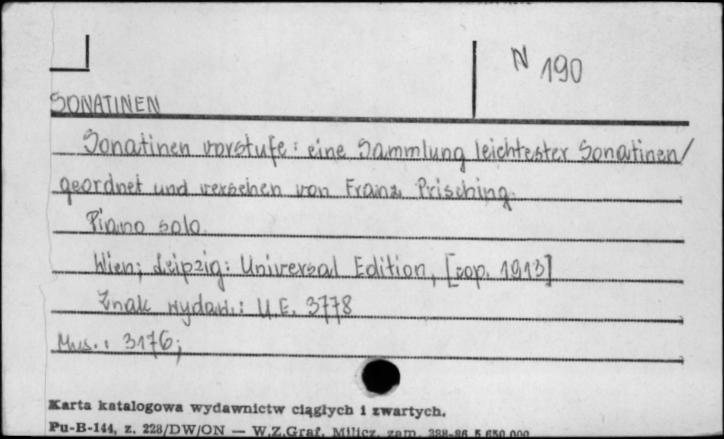 N 190
SONATINEN
Sonatinen vorstufe: eine Sammlung leichtester Sonatinen/
geordnet und versehen von Franz Prisching.
Piano solo.
Wien; Leipzig: Universal Edition, [cop. 1913]
Znak wydaw.: U.E. 3778
Mus.: 3176;
Karta katalogowa wydawnictw ciągłych i zwartych.
Pu-B-144, z. 228/DW/ON — W.Z.Graf. Milicz, zam. 388-86 5.650.000